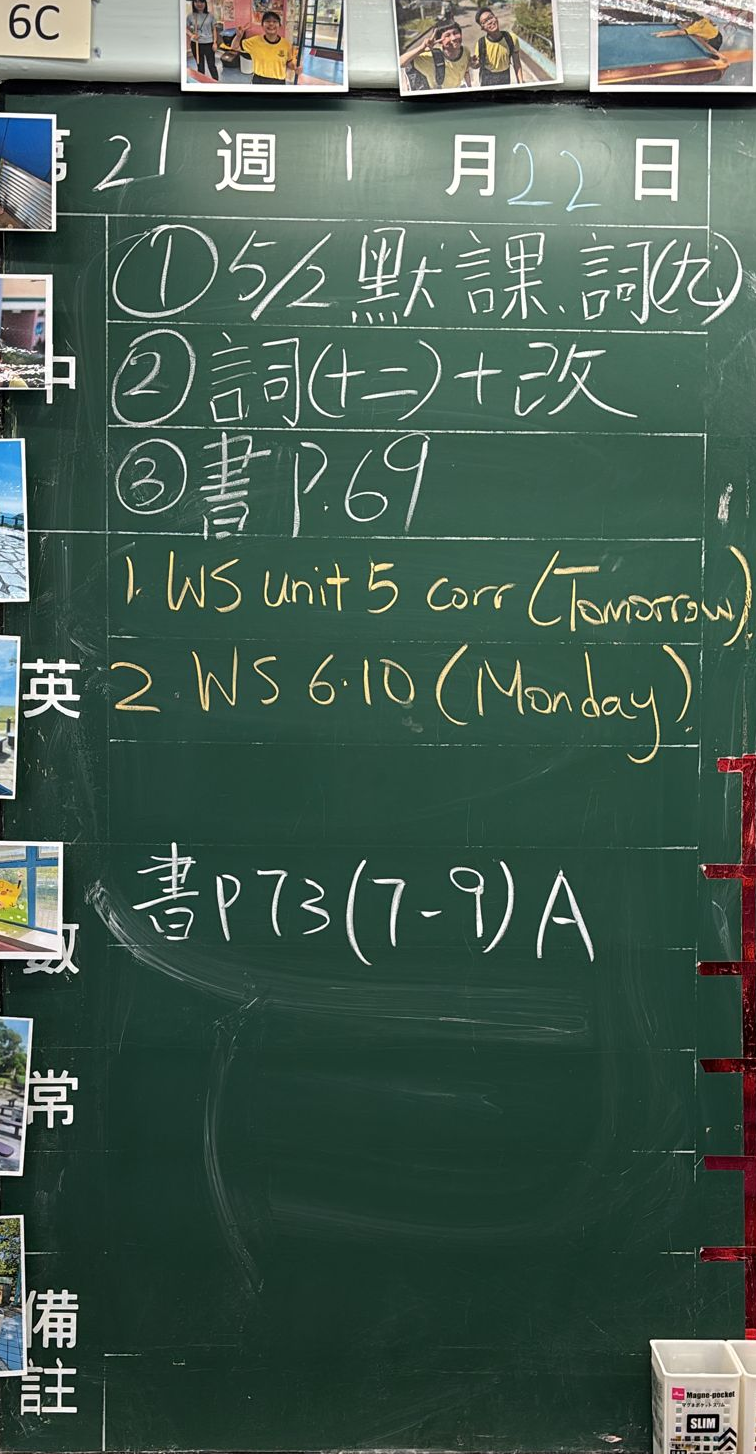 6C
第21週1月22日
中
①5/2 默課、詞(九)
②詞(十二)+改
③書P.69
英
1. WS unit 5 corr (Tomorrow)
2. WS 6.10 (Monday)
數
書P73(7-9)A
常
備註
Magne-pocket
SLIM